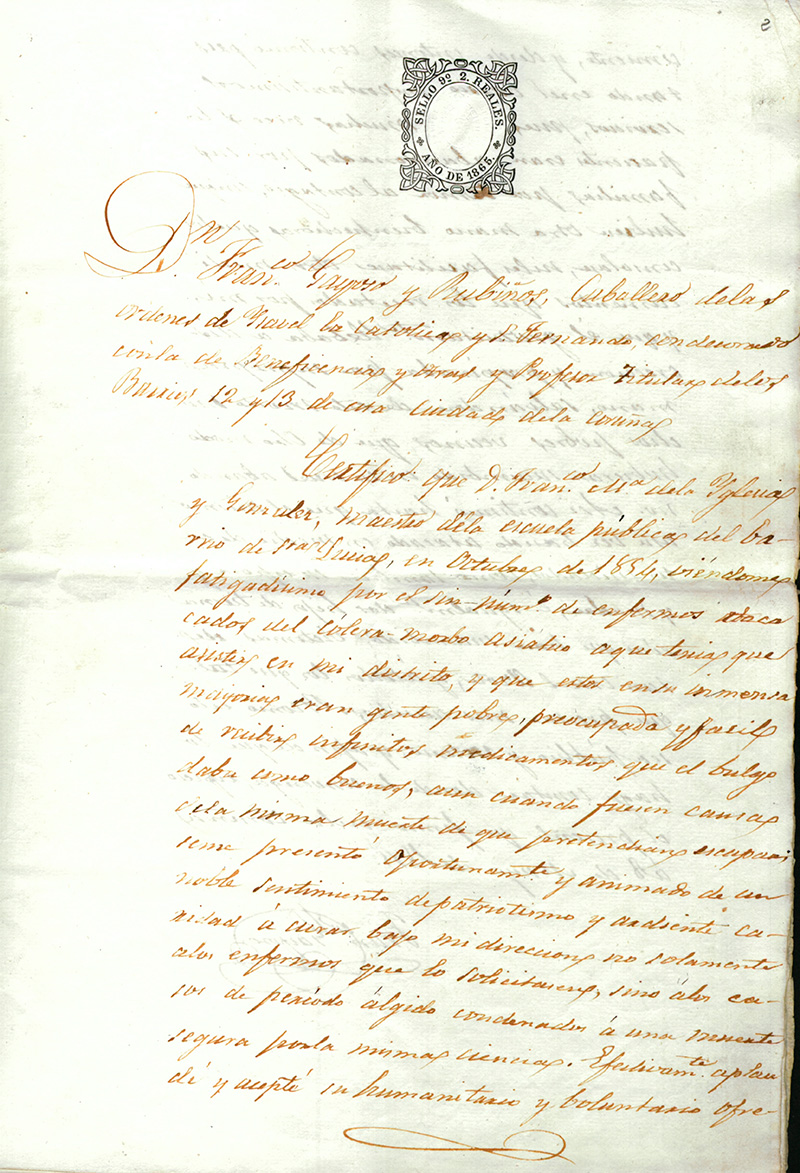 8
SELLO 9º 2. REALES.
AÑO DE 1865.
Dn.
Franco. Gayoso y Rubiños, Caballero delas
ordenes de Ysavel la Catolica y S. Fernando, condecorado
conla de Beneficencia y otras y Profesor Titular delos
Barrios 12 y 13 de esta Ciudad dela Coruña
Certifico: que D. Franco. Ma. dela Yglesia
y Gonzalez, maestro dela escuela pública del ba-
rrio de Sta. Lucia, en Octubre de 1854, viendome
fatigadisimo por el sin-númo. de enfermos ataca
cados del cólera-morbo asiatico aque tenia que
asistir en mi distrito, y que estos en su inmensa
mayoria eran gente pobre, preocupada y facil
de recibir infinitos medicamentos que el bulgo
daba como buenos, aun cuando fuesen causa
dela misma muerte de que pretendian escapar
seme presentó oportunamte. y animado de un
noble sentimiento depatriotismo y ardiente ca-
ridad á curar bajo mi direccion no solamente
alos enfermos que lo solicitasen, sino álos ca-
sos de período álgido condenados á una muerte
segura porla misma ciencia. Efectivamte. aplau
dí y acepté su humanitario y boluntario ofre-